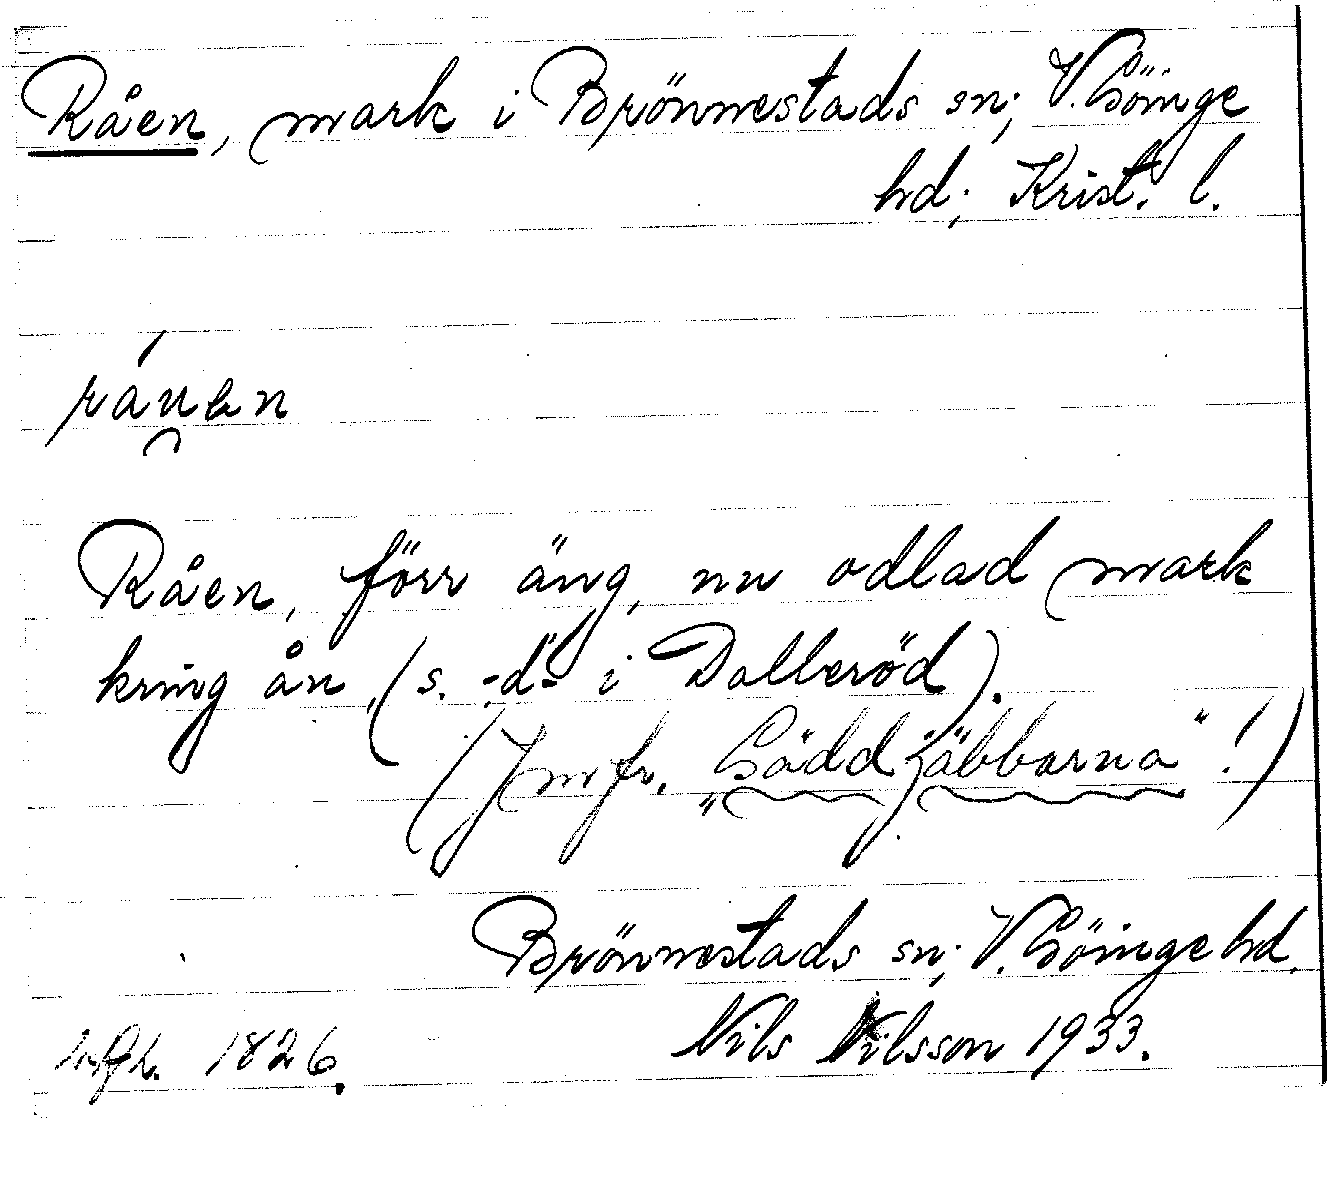 Råen, mark i Brönnestads sn; V. Göinge
hd; Krist. l.
råuen
Råen, förr äng, nu odlad mark
kring ån, (s. -d- i Dalleröd).
(Jmfr. „Gäddjäbbarna"!)
Brönnestads sn; V. Göinge hd.
Nils Nilsson 1933.
1826.